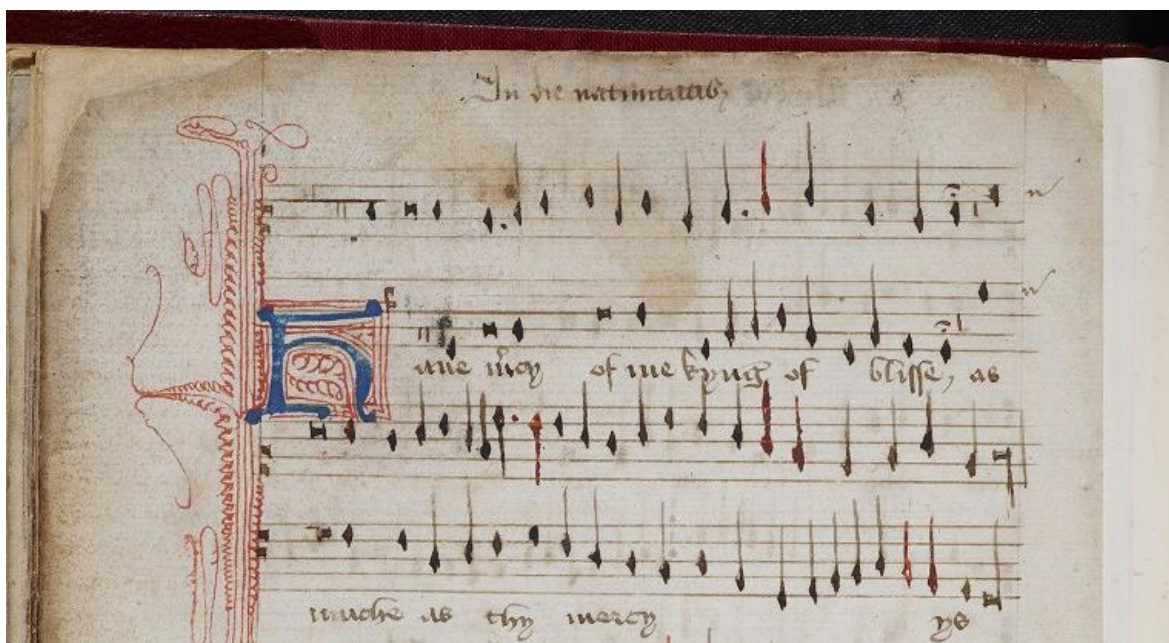 In die natiuitatis
Haue m̄cy of me kyng of blisse, as
muche as thy mercy ys